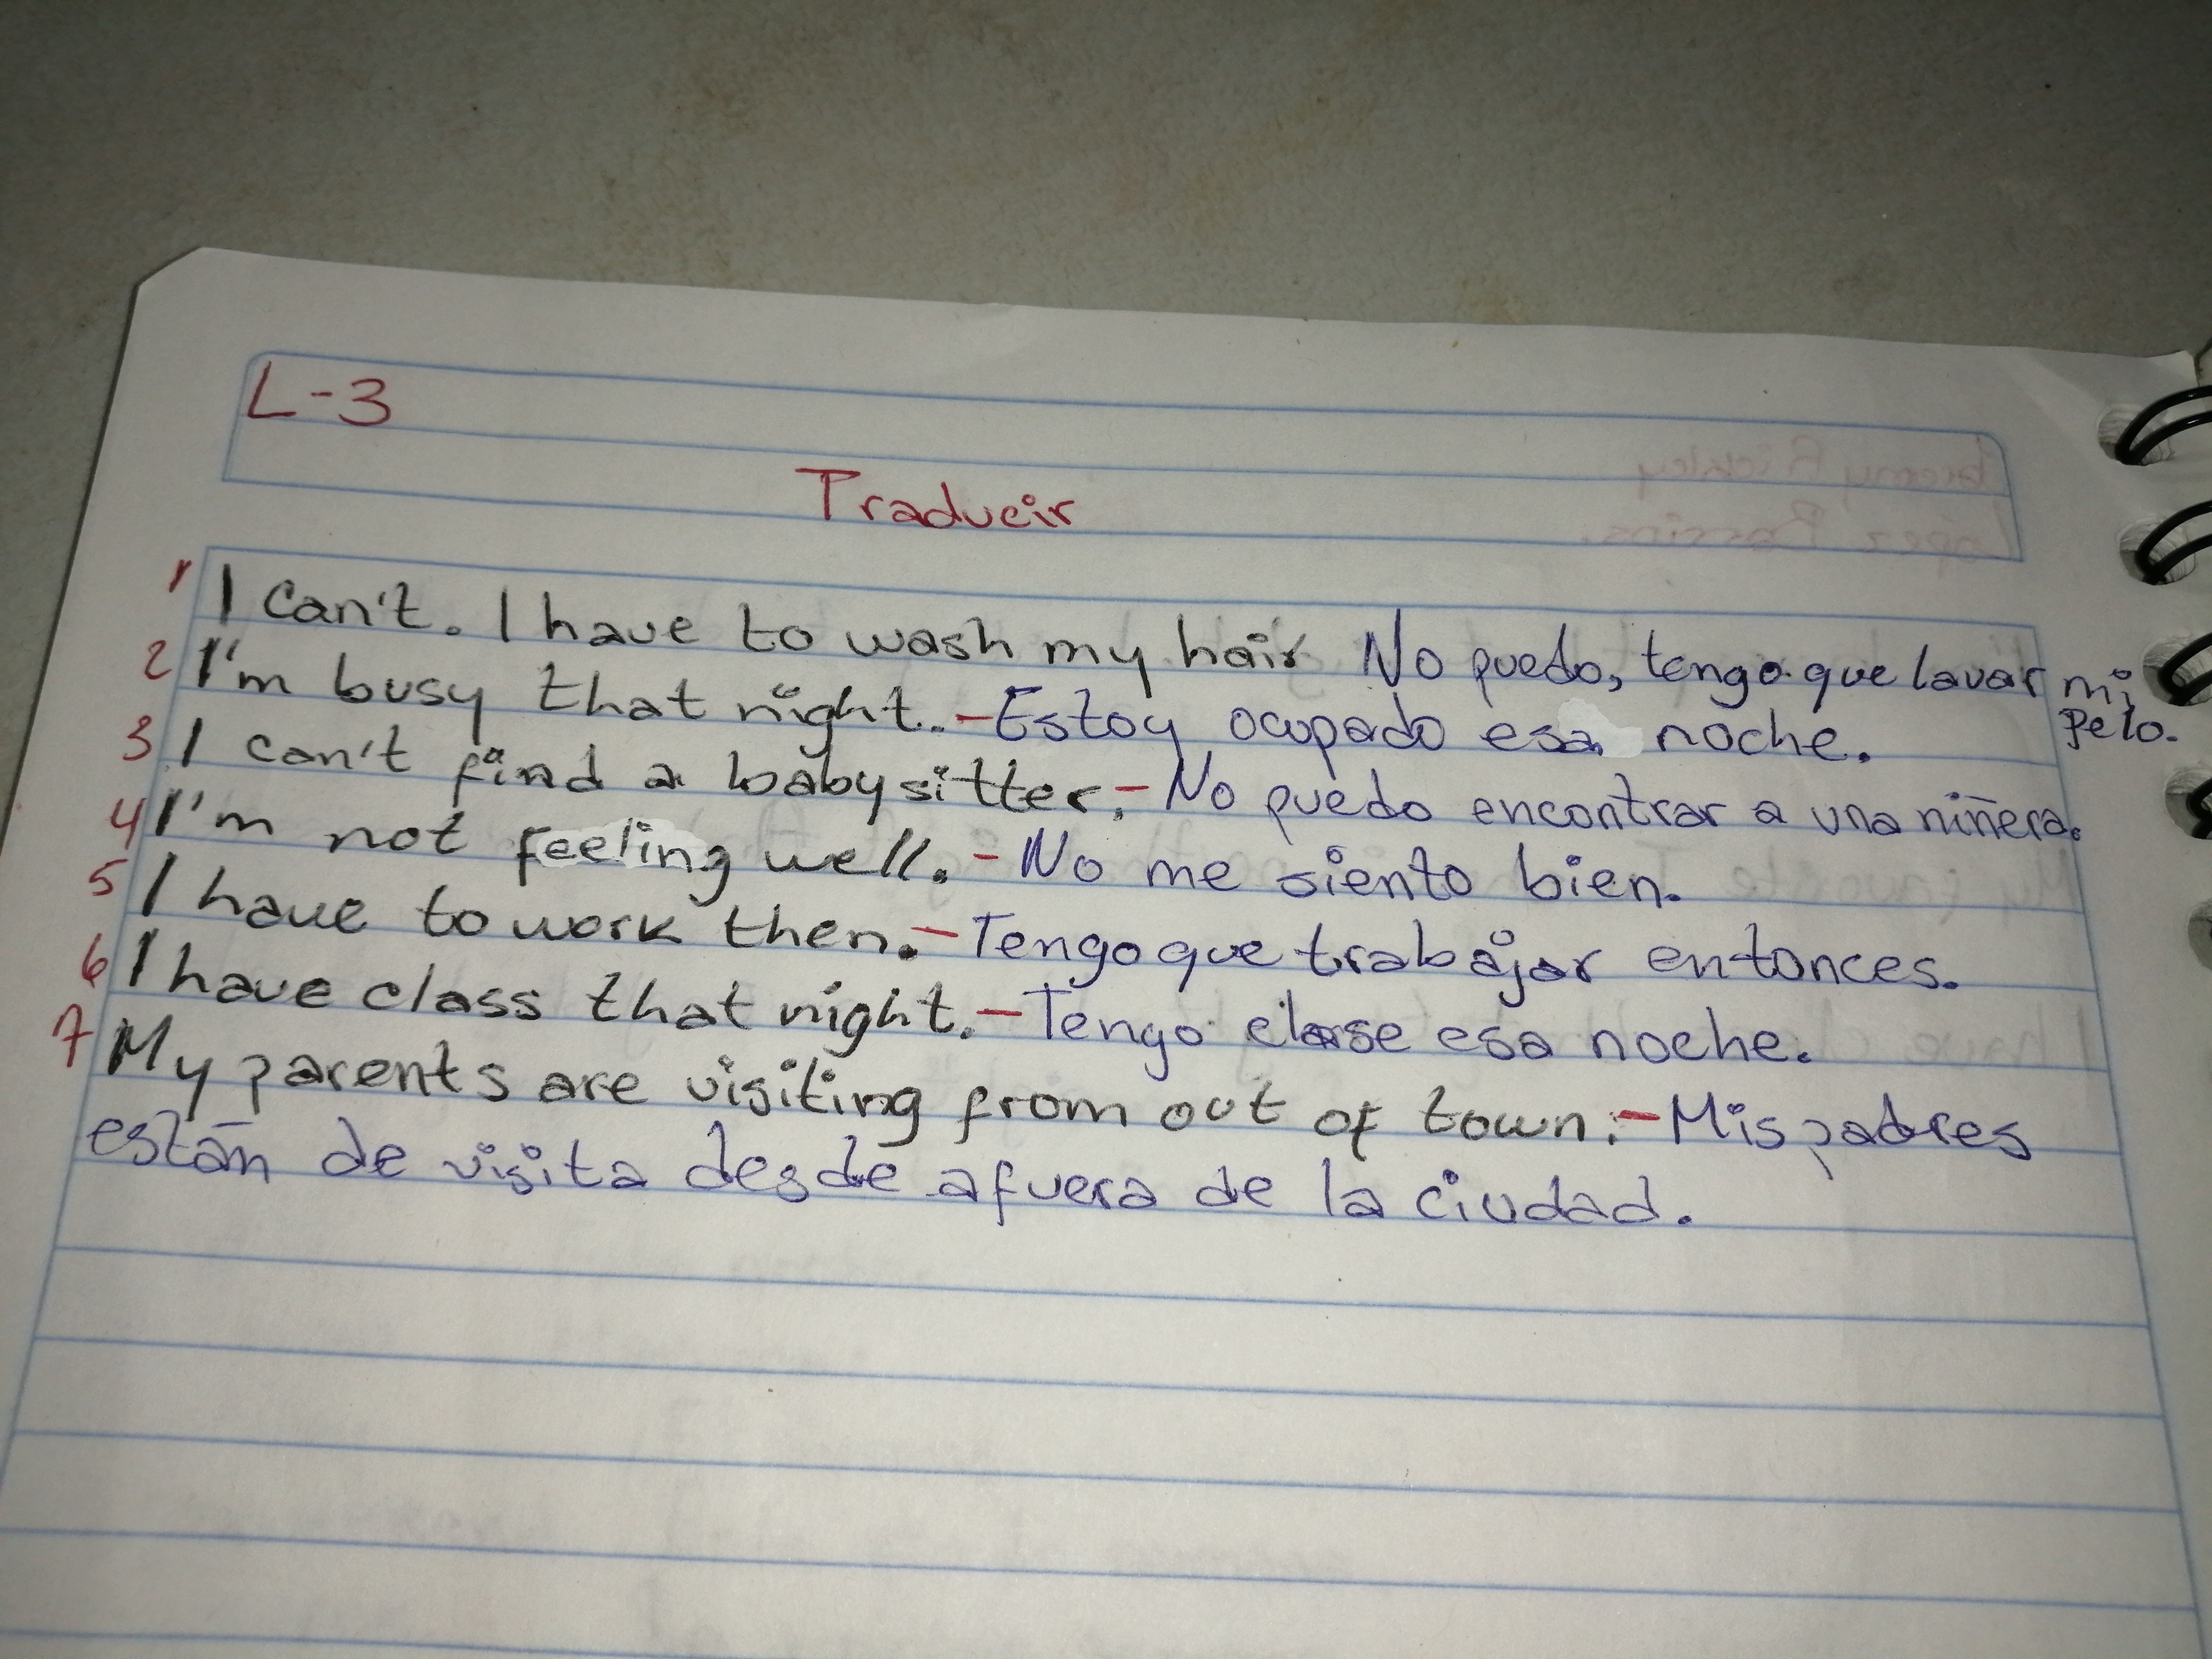 L-3
Traducir
1 I can't. I have to wash my hair No puedo, tengo que lavar mi pelo.
2 I'm busy that night.-Estoy ocupado esa noche.
3 I can't find a babysitter.-No puedo encontrar a una niñera.
4 I'm not feeling well.-No me siento bien.
5 I have to work then.-Tengo que trabajar entonces.
6 I have class that night.-Tengo clase esa noche.
7 My parents are visiting from out of town.-Mis padres
están de visita desde afuera de la ciudad.